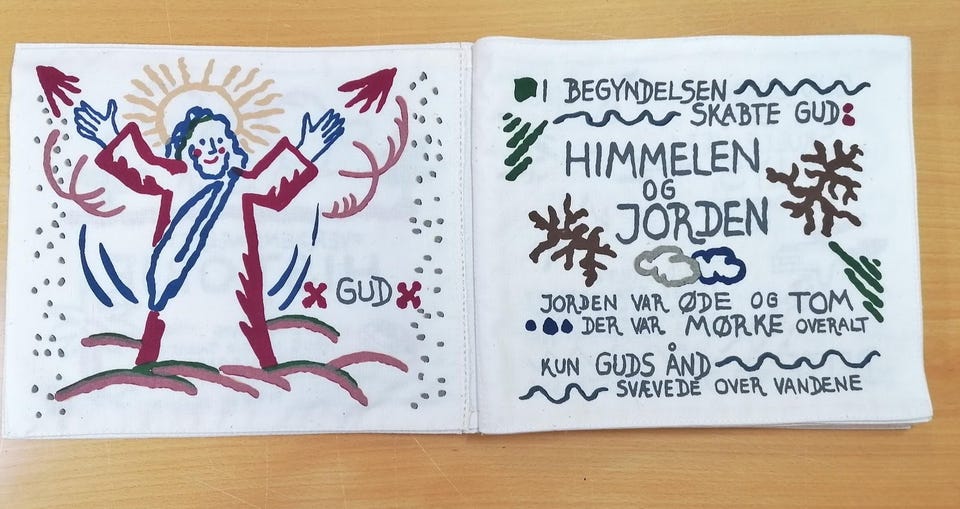 GUD
I BEGYNDELSEN
SKABTE GUD:
HIMMELEN
OG
JORDEN
JORDEN VAR ØDE OG TOM
... DER VAR MØRKE OVERALT
KUN GUDS ÅND
SVÆVEDE OVER VANDENE